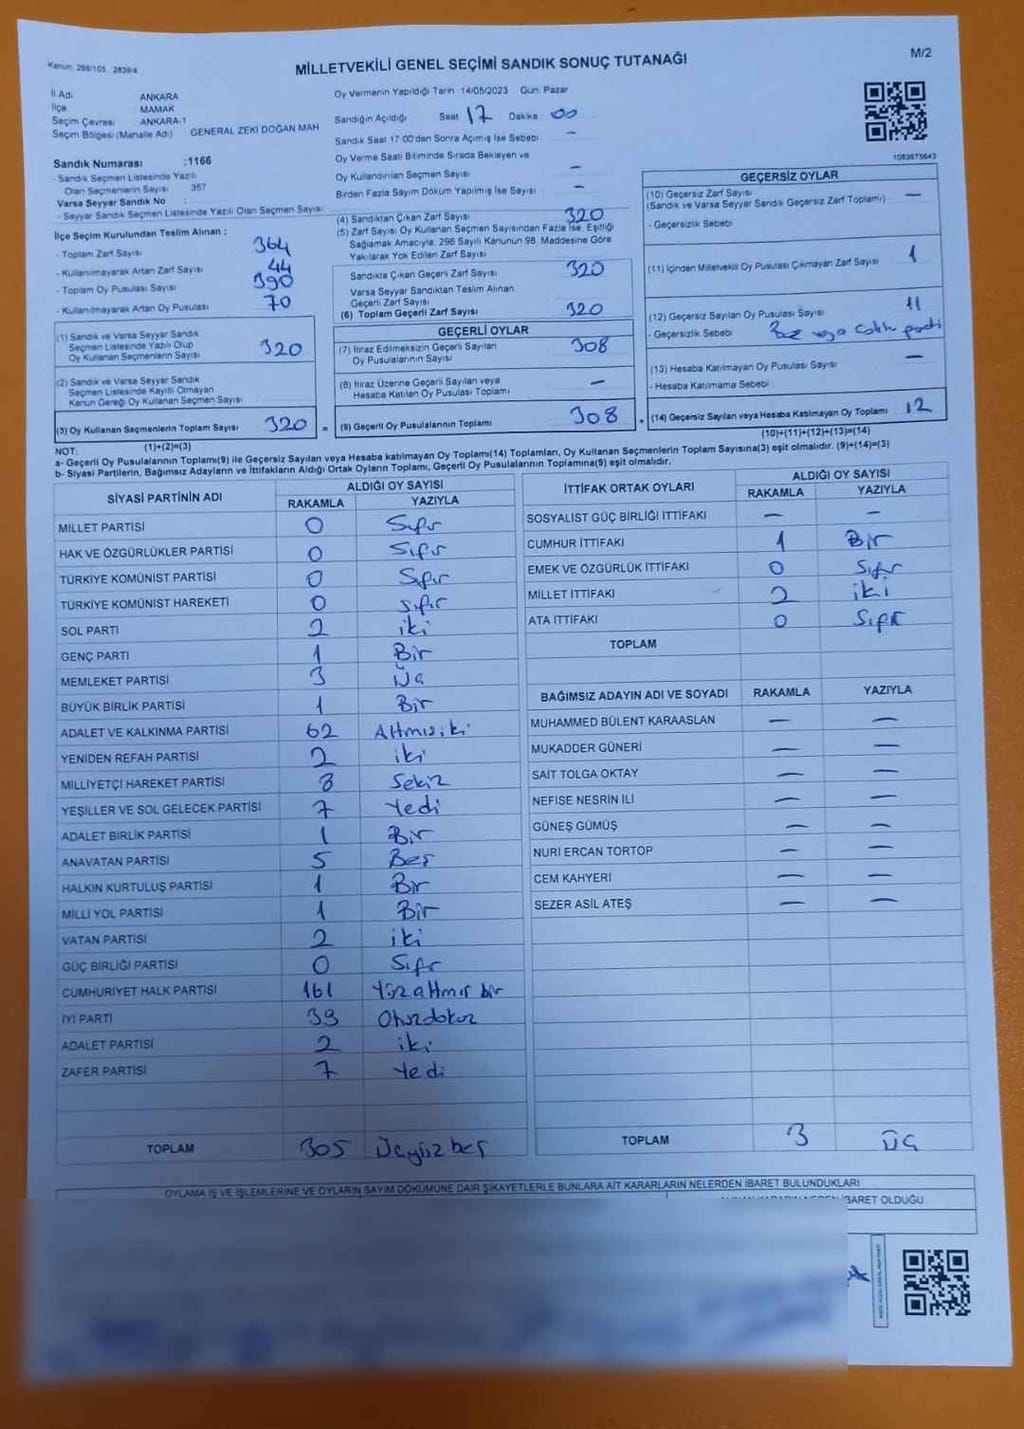 Kanun: 298/105 , 2839/4
MİLLETVEKİLİ GENEL SEÇİMİ SANDIK SONUÇ TUTANAĞI
M/2
İl Adı ANKARA
İlçe MAMAK
Seçim Çevresi ANKARA-1
Seçim Bölgesi (Mahalle Adı) GENERAL ZEKİ DOĞAN MAH
Sandık Numarası :1166
- Sandık Seçmen Listesinde Yazılı
Olan Seçmenlerin Sayısı 357
Varsa Seyyar Sandık No :
- Seyyar Sandık Seçmen Listesinde Yazılı Olan Seçmen Sayısı:
İlçe Seçim Kurulundan Teslim Alınan :
- Toplam Zarf Sayısı 364
- Kullanılmayarak Artan Zarf Sayısı 44
- Toplam Oy Pusulası Sayısı 390
- Kullanılmayarak Artan Oy Pusulası 70
(1) Sandık ve Varsa Seyyar Sandık
Seçmen Listesinde Yazılı Olup
Oy Kullanan Seçmenlerin Sayısı 320
(2) Sandık ve Varsa Seyyar Sandık
Seçmen Listesinde Kayıtlı Olmayan
Kanun Gereği Oy Kullanan Seçmen Sayısı
(3) Oy Kullanan Seçmenlerin Toplam Sayısı 320 =
(1)+(2)=(3)
Oy Vermenin Yapıldığı Tarih 14/05/2023 Gün: Pazar
Sandığın Açıldığı Saat 17 Dakika 00
Sandık Saat 17:00'dan Sonra Açılmış İse Sebebi —
Oy Verme Saati Bitiminde Sırada Bekleyen ve
Oy Kullandırılan Seçmen Sayısı —
Birden Fazla Sayım Döküm Yapılmış İse Sayısı —
(4) Sandıktan Çıkan Zarf Sayısı 320
(5) Zarf Sayısı Oy Kullanan Seçmen Sayısından Fazla İse, Eşitliği
Sağlamak Amacıyla, 298 Sayılı Kanunun 98. Maddesine Göre
Yakılarak Yok Edilen Zarf Sayısı
Sandıkta Çıkan Geçerli Zarf Sayısı 320
Varsa Seyyar Sandıktan Teslim Alınan
Geçerli Zarf Sayısı
(6) Toplam Geçerli Zarf Sayısı 320
GEÇERLİ OYLAR
(7) İtiraz Edilmeksizin Geçerli Sayılan
Oy Pusulalarının Sayısı 308
(8) İtiraz Üzerine Geçerli Sayılan veya
Hesaba Katılan Oy Pusulası Toplamı —
(9) Geçerli Oy Pusulalarının Toplamı 308 +
1083875643
GEÇERSİZ OYLAR
(10) Geçersiz Zarf Sayısı
(Sandık ve Varsa Seyyar Sandık Geçersiz Zarf Toplamı) —
- Geçersizlik Sebebi
(11) İçinden Milletvekili Oy Pusulası Çıkmayan Zarf Sayısı 1
(12) Geçersiz Sayılan Oy Pusulası Sayısı 11
- Geçersizlik Sebebi Boş veya Çoklu parti
(13) Hesaba Katılmayan Oy Pusulası Sayısı —
- Hesaba Katılmama Sebebi
(14) Geçersiz Sayılan veya Hesaba Katılmayan Oy Toplamı 12
(10)+(11)+(12)+(13)=(14)
NOT:
a- Geçerli Oy Pusulalarının Toplamı(9) ile Geçersiz Sayılan veya Hesaba katılmayan Oy Toplamı(14) Toplamları, Oy Kullanan Seçmenlerin Toplam Sayısına(3) eşit olmalıdır. (9)+(14)=(3)
b- Siyasi Partilerin, Bağımsız Adayların ve İttifakların Aldığı Ortak Oyların Toplamı, Geçerli Oy Pusulalarının Toplamına(9) eşit olmalıdır.
SİYASİ PARTİNİN ADI ALDIĞI OY SAYISI
RAKAMLA YAZIYLA
MİLLET PARTİSİ 0 Sıfır
HAK VE ÖZGÜRLÜKLER PARTİSİ 0 Sıfır
TÜRKİYE KOMÜNİST PARTİSİ 0 Sıfır
TÜRKİYE KOMÜNİST HAREKETİ 0 Sıfır
SOL PARTİ 2 iki
GENÇ PARTİ 1 Bir
MEMLEKET PARTİSİ 3 Üç
BÜYÜK BİRLİK PARTİSİ 1 Bir
ADALET VE KALKINMA PARTİSİ 62 Altmışiki
YENİDEN REFAH PARTİSİ 2 iki
MİLLİYETÇİ HAREKET PARTİSİ 8 Sekiz
YEŞİLLER VE SOL GELECEK PARTİSİ 7 Yedi
ADALET BİRLİK PARTİSİ 1 Bir
ANAVATAN PARTİSİ 5 Beş
HALKIN KURTULUŞ PARTİSİ 1 Bir
MİLLİ YOL PARTİSİ 1 Bir
VATAN PARTİSİ 2 iki
GÜÇ BİRLİĞİ PARTİSİ 0 Sıfır
CUMHURİYET HALK PARTİSİ 161 Yüzaltmış bir
İYİ PARTİ 39 Otuzdokuz
ADALET PARTİSİ 2 iki
ZAFER PARTİSİ 7 Yedi
TOPLAM 305 Üçyüzbeş
İTTİFAK ORTAK OYLARI ALDIĞI OY SAYISI
RAKAMLA YAZIYLA
SOSYALİST GÜÇ BİRLİĞİ İTTİFAKI — —
CUMHUR İTTİFAKI 1 Bir
EMEK VE ÖZGÜRLÜK İTTİFAKI 0 Sıfır
MİLLET İTTİFAKI 2 iki
ATA İTTİFAKI 0 Sıfır
TOPLAM
BAĞIMSIZ ADAYIN ADI VE SOYADI RAKAMLA YAZIYLA
MUHAMMED BÜLENT KARAASLAN — —
MUKADDER GÜNERİ — —
SAİT TOLGA OKTAY — —
NEFİSE NESRİN İLİ — —
GÜNEŞ GÜMÜŞ — —
NURİ ERCAN TORTOP — —
CEM KAHYERİ — —
SEZER ASİL ATEŞ — —
TOPLAM 3 Üç
OYLAMA İŞ VE İŞLEMLERİNE VE OYLARIN SAYIM DÖKÜMÜNE DAİR ŞİKAYETLERLE BUNLARA AİT KARARLARIN NELERDEN İBARET BULUNDUKLARI
İBARET OLDUĞU